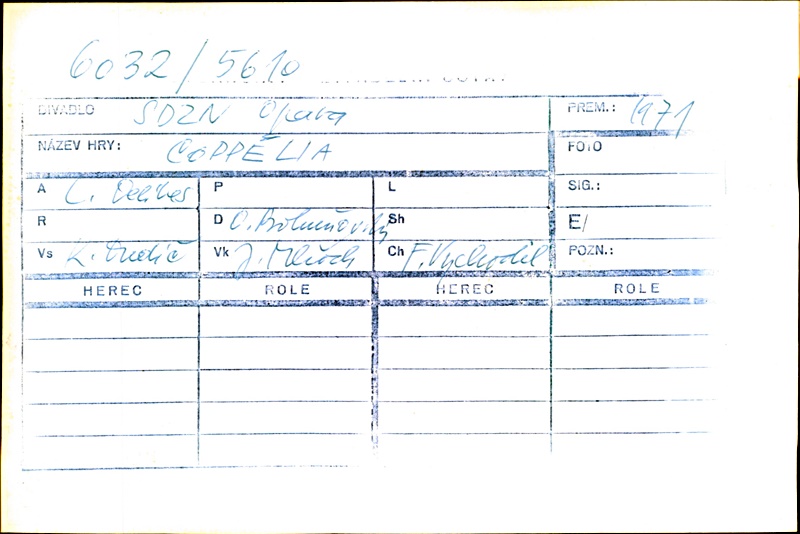 6032/5610
DIVADLO SDZN Opava PREM.: 1971
NÁZEV HRY: COPPÉLIA FOTO
A L. Delibes P L SIG.:
R D O. Bohuňovský Sh E/
Vs Vk Ch F. Vychodil POZN.:
HEREC ROLE HEREC ROLE